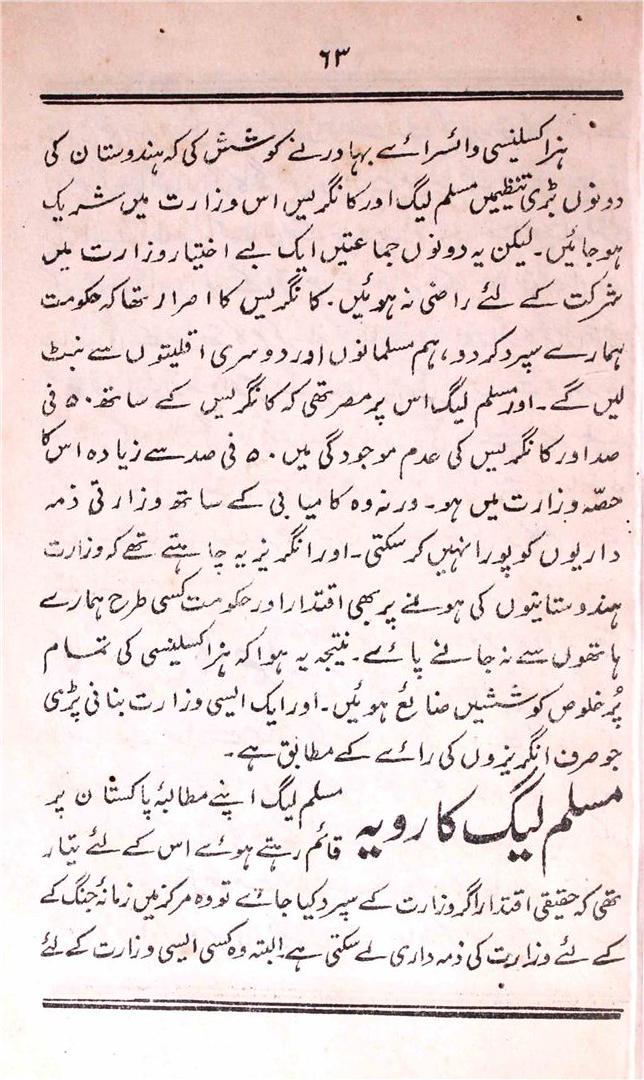 ۶۳
ہزاکسلنسی وائسرائے بہادر نے کوشش کی کہ ہندوستان کی
دونوں بڑی تنظیمیں مسلم لیگ اور کانگریس اس وزارت میں شریک
ہو جائیں۔ لیکن یہ دونوں جماعتیں ایک بے اختیار وزارت میں
شرکت کے لئے راضی نہ ہوئیں۔ کانگریس کا اصرار تھا کہ حکومت
ہمارے سپرد کر دو، ہم مسلمانوں اور دوسری اقلیتوں سے نبٹ
لیں گے۔ اور مسلم لیگ اس پر مصر تھی کہ کانگریس کے ساتھ ۵۰ فی
صد اور کانگریس کی عدم موجودگی میں ۵۰ فی صد سے زیادہ اس کا
حصّہ وزارت میں ہو۔ ورنہ وہ کامیابی کے ساتھ وزارتی ذمہ
داریوں کو پورا نہیں کر سکتی۔ اور انگریز یہ چاہتے تھے کہ وزارت
ہندوستانیوں کی ہونے پر بھی اقتدار اور حکومت کسی طرح ہمارے
ہاتھوں سے نہ جانے پائے۔ نتیجہ یہ ہوا کہ ہزاکسلینسی کی تمام
پُر خلوص کوششیں ضائع ہوئیں۔ اور ایک ایسی وزارت بنانی پڑی
جو صرف انگریزوں کی رائے کے مطابق ہے۔
مسلم لیگ کا رویہ
مسلم لیگ اپنے مطالبۂ پاکستان پر
قائم رہتے ہوئے اس کے لئے تیار
تھی کہ حقیقی اقتدار اگر وزارت کے سپرد کیا جائے تو وہ مرکز میں زمانۂ جنگ کے
کے لئے وزارت کی ذمہ داری لے سکتی ہے۔ البتہ وہ کسی ایسی وزارت کے لئے